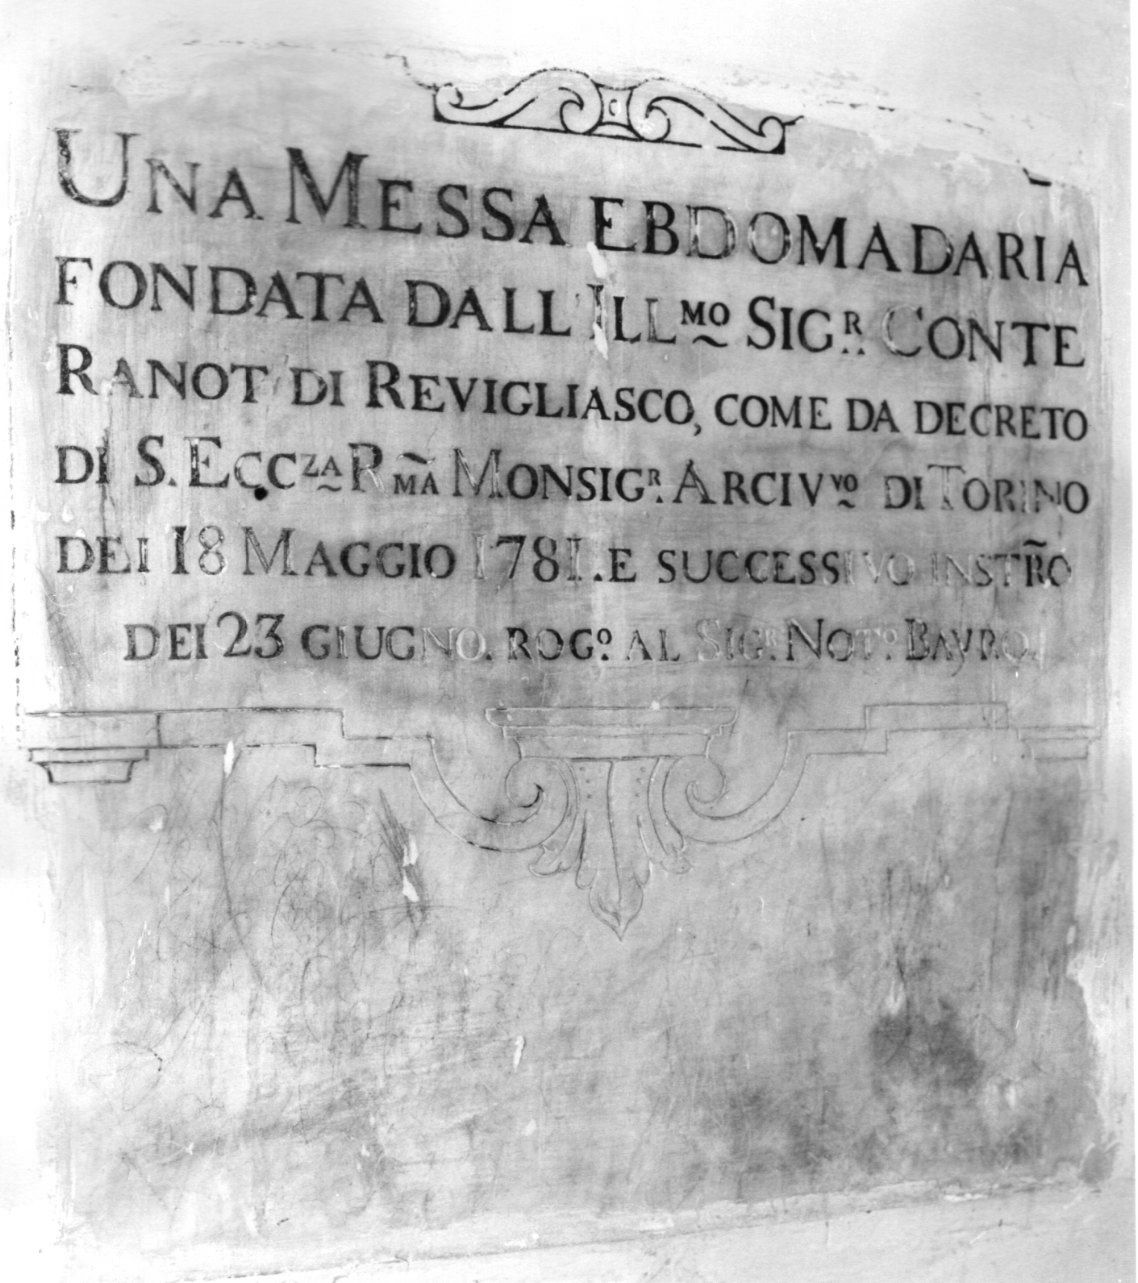 UNA MESSA EBDOMADARIA
FONDATA DALL'ILL.MO SIG.R CONTE
RANOT DI REVIGLIASCO, COME DA DECRETO
DI S. ECC.ZA R.MA MONSIG.R ARCIV.VO DI TORINO
DEI 18 MAGGIO 1781. E SUCCESSIVO INSTR̃O
DEI 23 GIUGNO. ROG.O AL SIG.R NOT.O BAVRO.